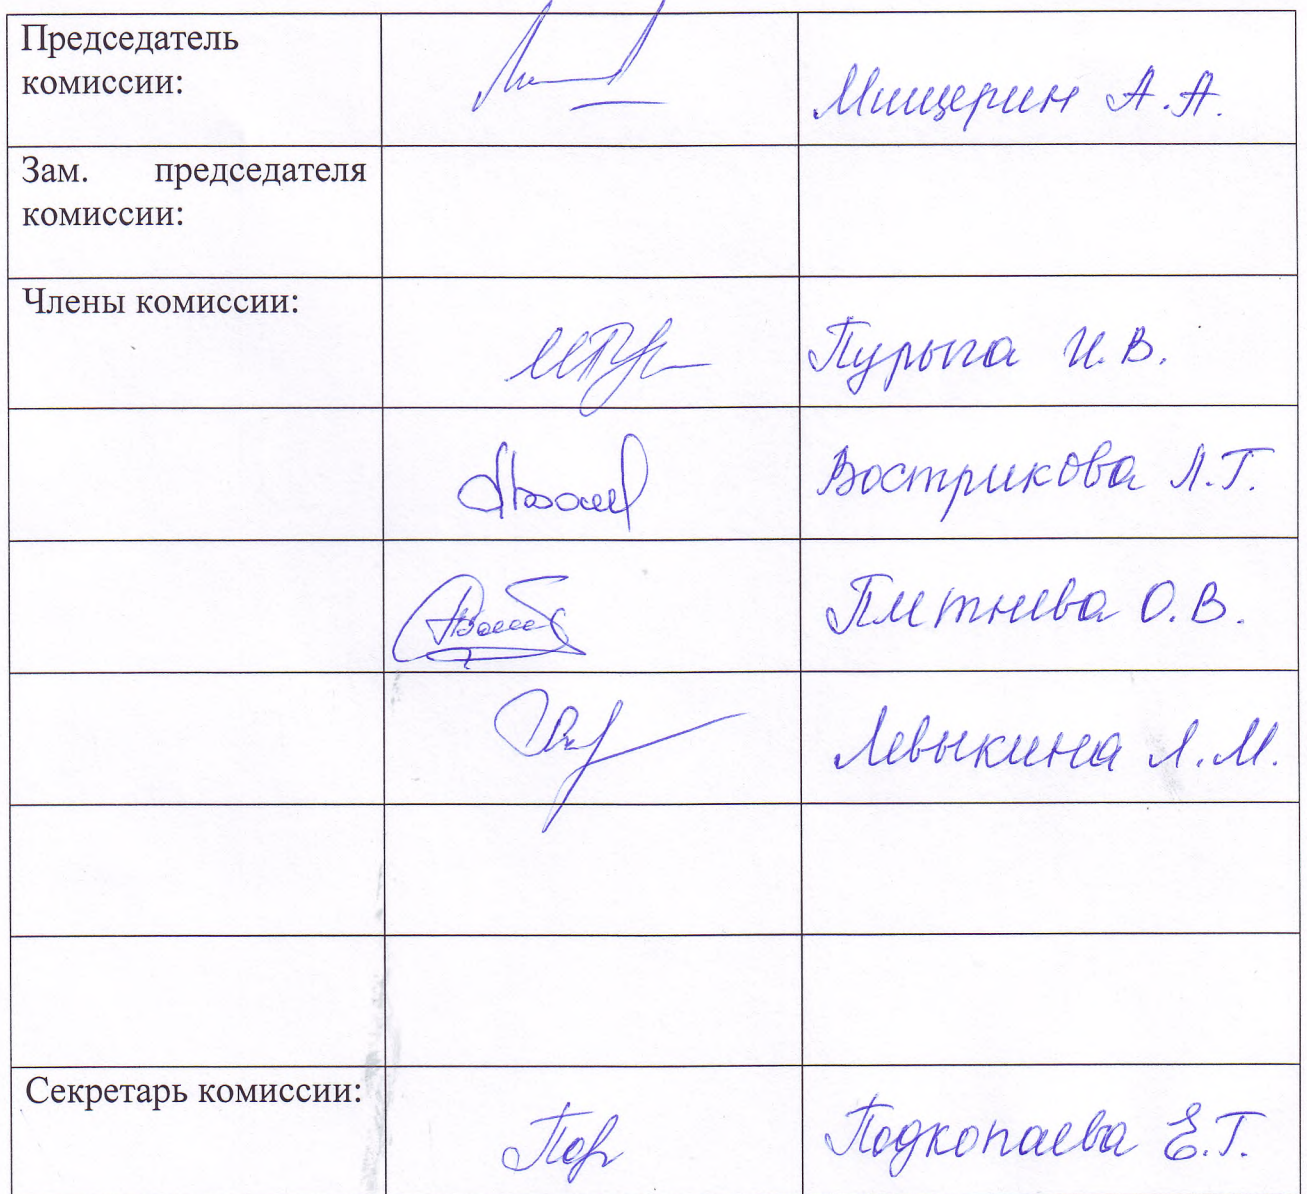 Председатель
комиссии:
Мищерин А.А.
Зам. председателя
комиссии:
Члены комиссии:
Пурыга И.В.
Вострикова Л.Г.
Плетнева О.В.
Левыкина Л.М.
Секретарь комиссии:
Подкопаева Е.Г.